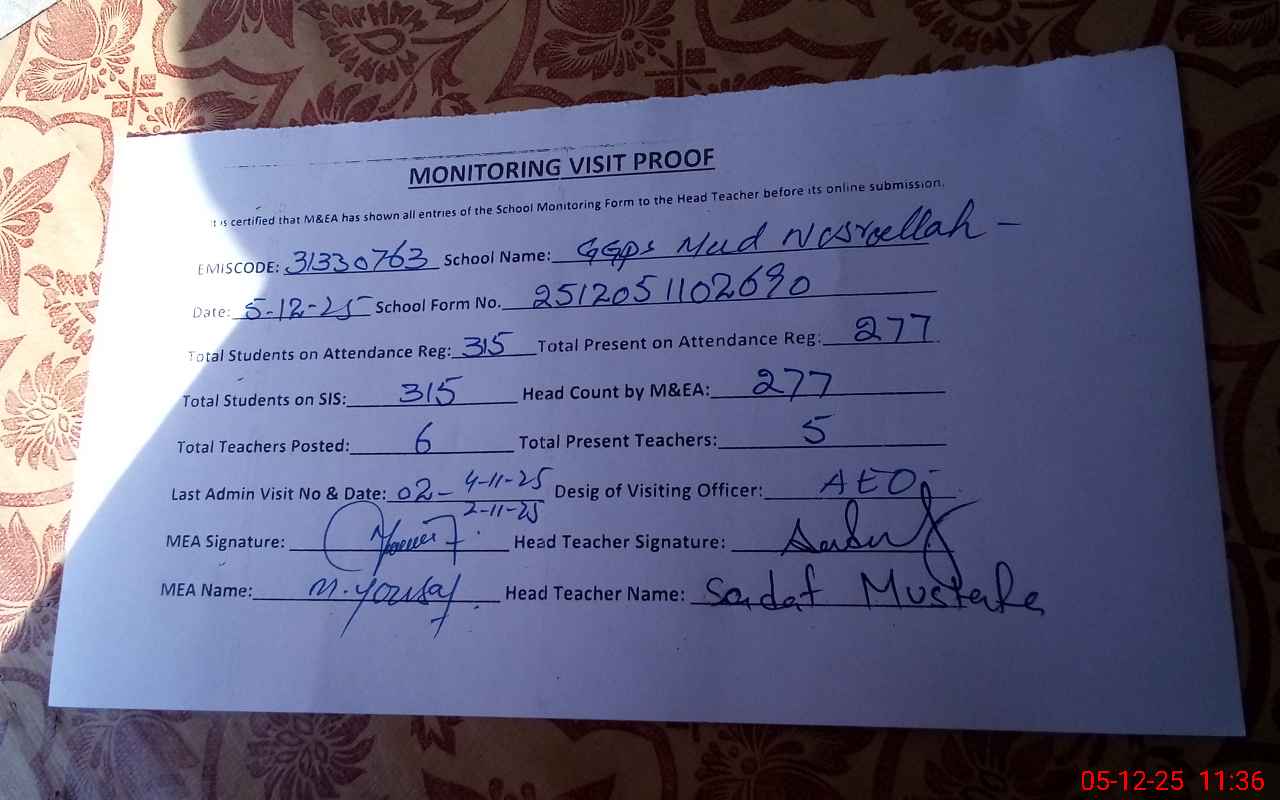 MONITORING VISIT PROOF
It is certified that M&EA has shown all entries of the School Monitoring Form to the Head Teacher before its online submission.
EMISCODE: 31330763 School Name: GGPS Mud Nasroellah -
Date: 5-12-25 School Form No. 2512051102690
Total Students on Attendance Reg: 315 Total Present on Attendance Reg: 277
Total Students on SIS: 315 Head Count by M&EA: 277
Total Teachers Posted: 6 Total Present Teachers: 5
Last Admin Visit No & Date: 02- 4-11-25 Desig of Visiting Officer: AEO
2-11-25
MEA Signature: Head Teacher Signature:
MEA Name: M. Yousaf Head Teacher Name: Sadaf Mustafa
05-12-25 11:36